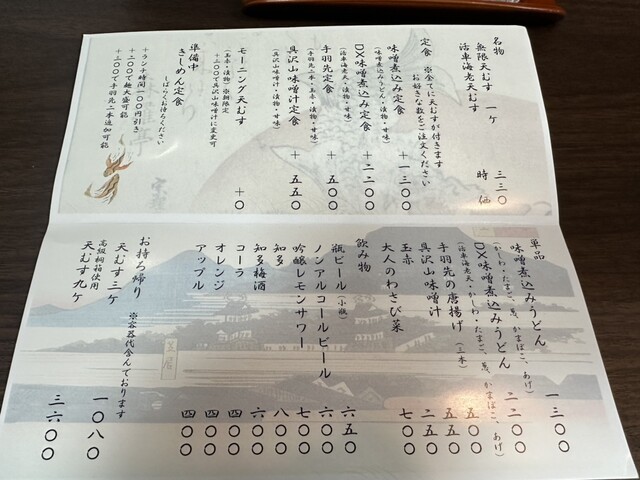 名物
無限天むす 一ヶ 三三〇
活車海老天むす 時価
定食 ※全てに天むすが付きます
お好きな数をご注文ください
味噌煮込み定食 +一三〇〇
(味噌煮込みうどん・漬物・甘味)
DX味噌煮込み定食 +二二〇〇
(活車海老天・漬物・甘味)
手羽先定食 +五〇〇
(手羽先二本・玉赤・漬物・甘味)
具沢山味噌汁定食 +五五〇
(具沢山味噌汁・漬物・甘味)
モーニング天むす +〇
(玉赤・漬物)※朝限定
+三〇〇で具沢味噌汁に変更可
準備中
きしめん定食
しばらくお待ちください
+ランチ時間一〇〇円引き
+二〇〇で麺大盛可能
+三〇〇で手羽先二本追加可能
単品
味噌煮込みうどん 一三〇〇
(かしわ・たまご、葱、かまぼこ、あげ)
DX味噌煮込みうどん 二二〇〇
(活車海老天・かしわ・たまご、葱、かまぼこ、あげ)
手羽先の唐揚げ(三本) 五五〇
具沢山味噌汁 五五〇
玉赤 二五〇
大人のわさび菜 七〇〇
飲み物
瓶ビール(小瓶) 六五〇
ノンアルコールビール 六〇〇
吟醸レモンサワー 七〇〇
知多 八〇〇
知多梅酒 六〇〇
コーラ 四〇〇
オレンジ 四〇〇
アップル 四〇〇
お持ち帰り ※容器代含んでおります
天むす三ヶ 一〇八〇
高級桐箱使用
天むす九ヶ 三六〇〇